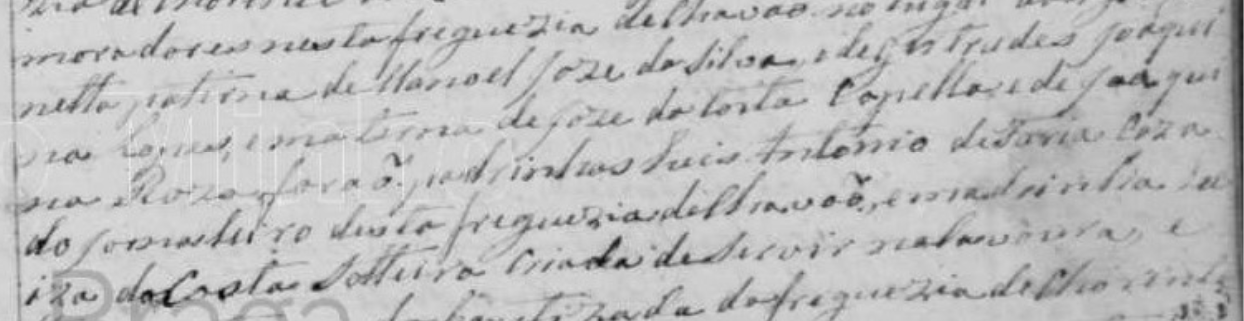 moradores nesta freguezia de Chavaõ no lugar
netta paterna de Manoel Joze da Silva, e de Gertrudes Joaqui
na Lopes, e materna de Joze da Costa Capella e de Joaqui
na Roza foraõ padrinhos Luis Antonio de Faria Caza
do jornaleiro desta freguezia de Chavaõ, e madrinha Lu
iza da Costa Solteira Criada de Servir na lavoura, e
da freguezia de Chorente